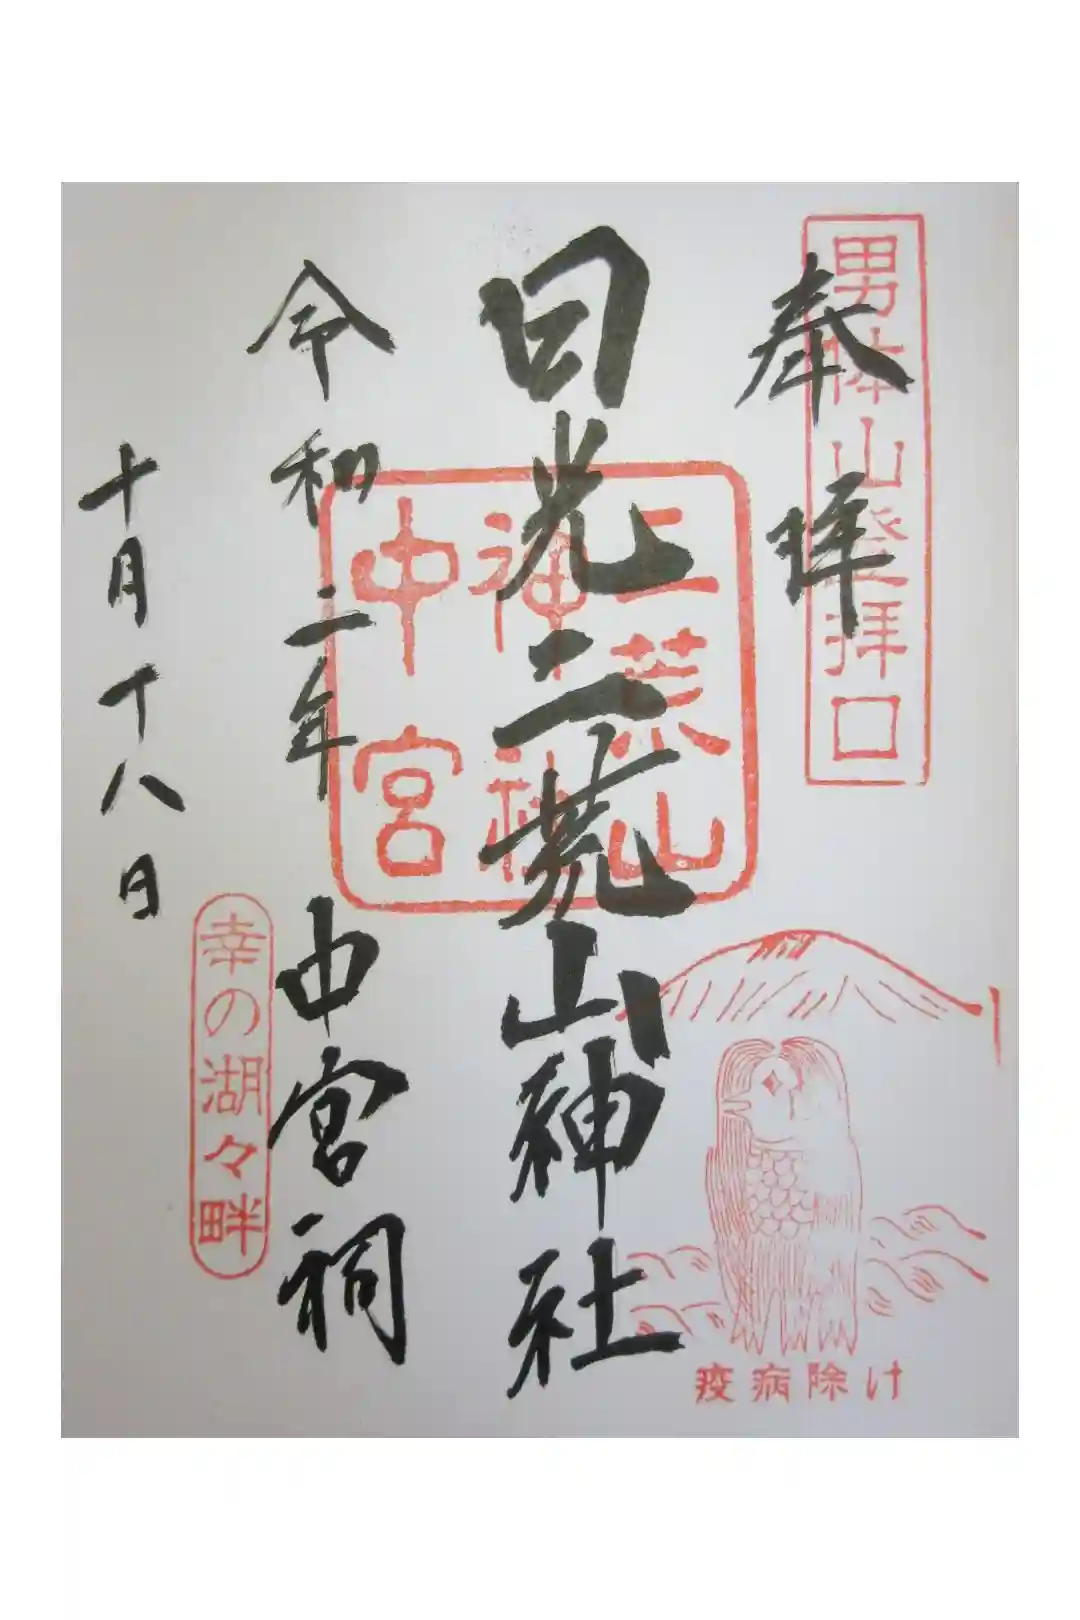 奉拝
男体山登拝口
日光二荒山神社
二荒山
神社
中宮
令和二年
中宮祠
十月十八日
幸の湖々畔
疫病除け